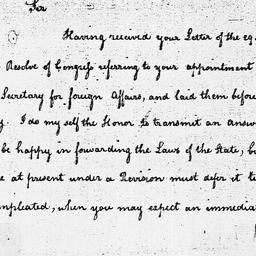 Sir
Having received your Letter of the 29.
Resolve of Congress referring to your appointment
Secretary for foreign Affairs, and laid them before
I do my self the Honor to transmit an Answ
be happy in fowarding the Laws of the State, b
e at present under a Revision must defer it t
mpleated, when you may expect an immedia